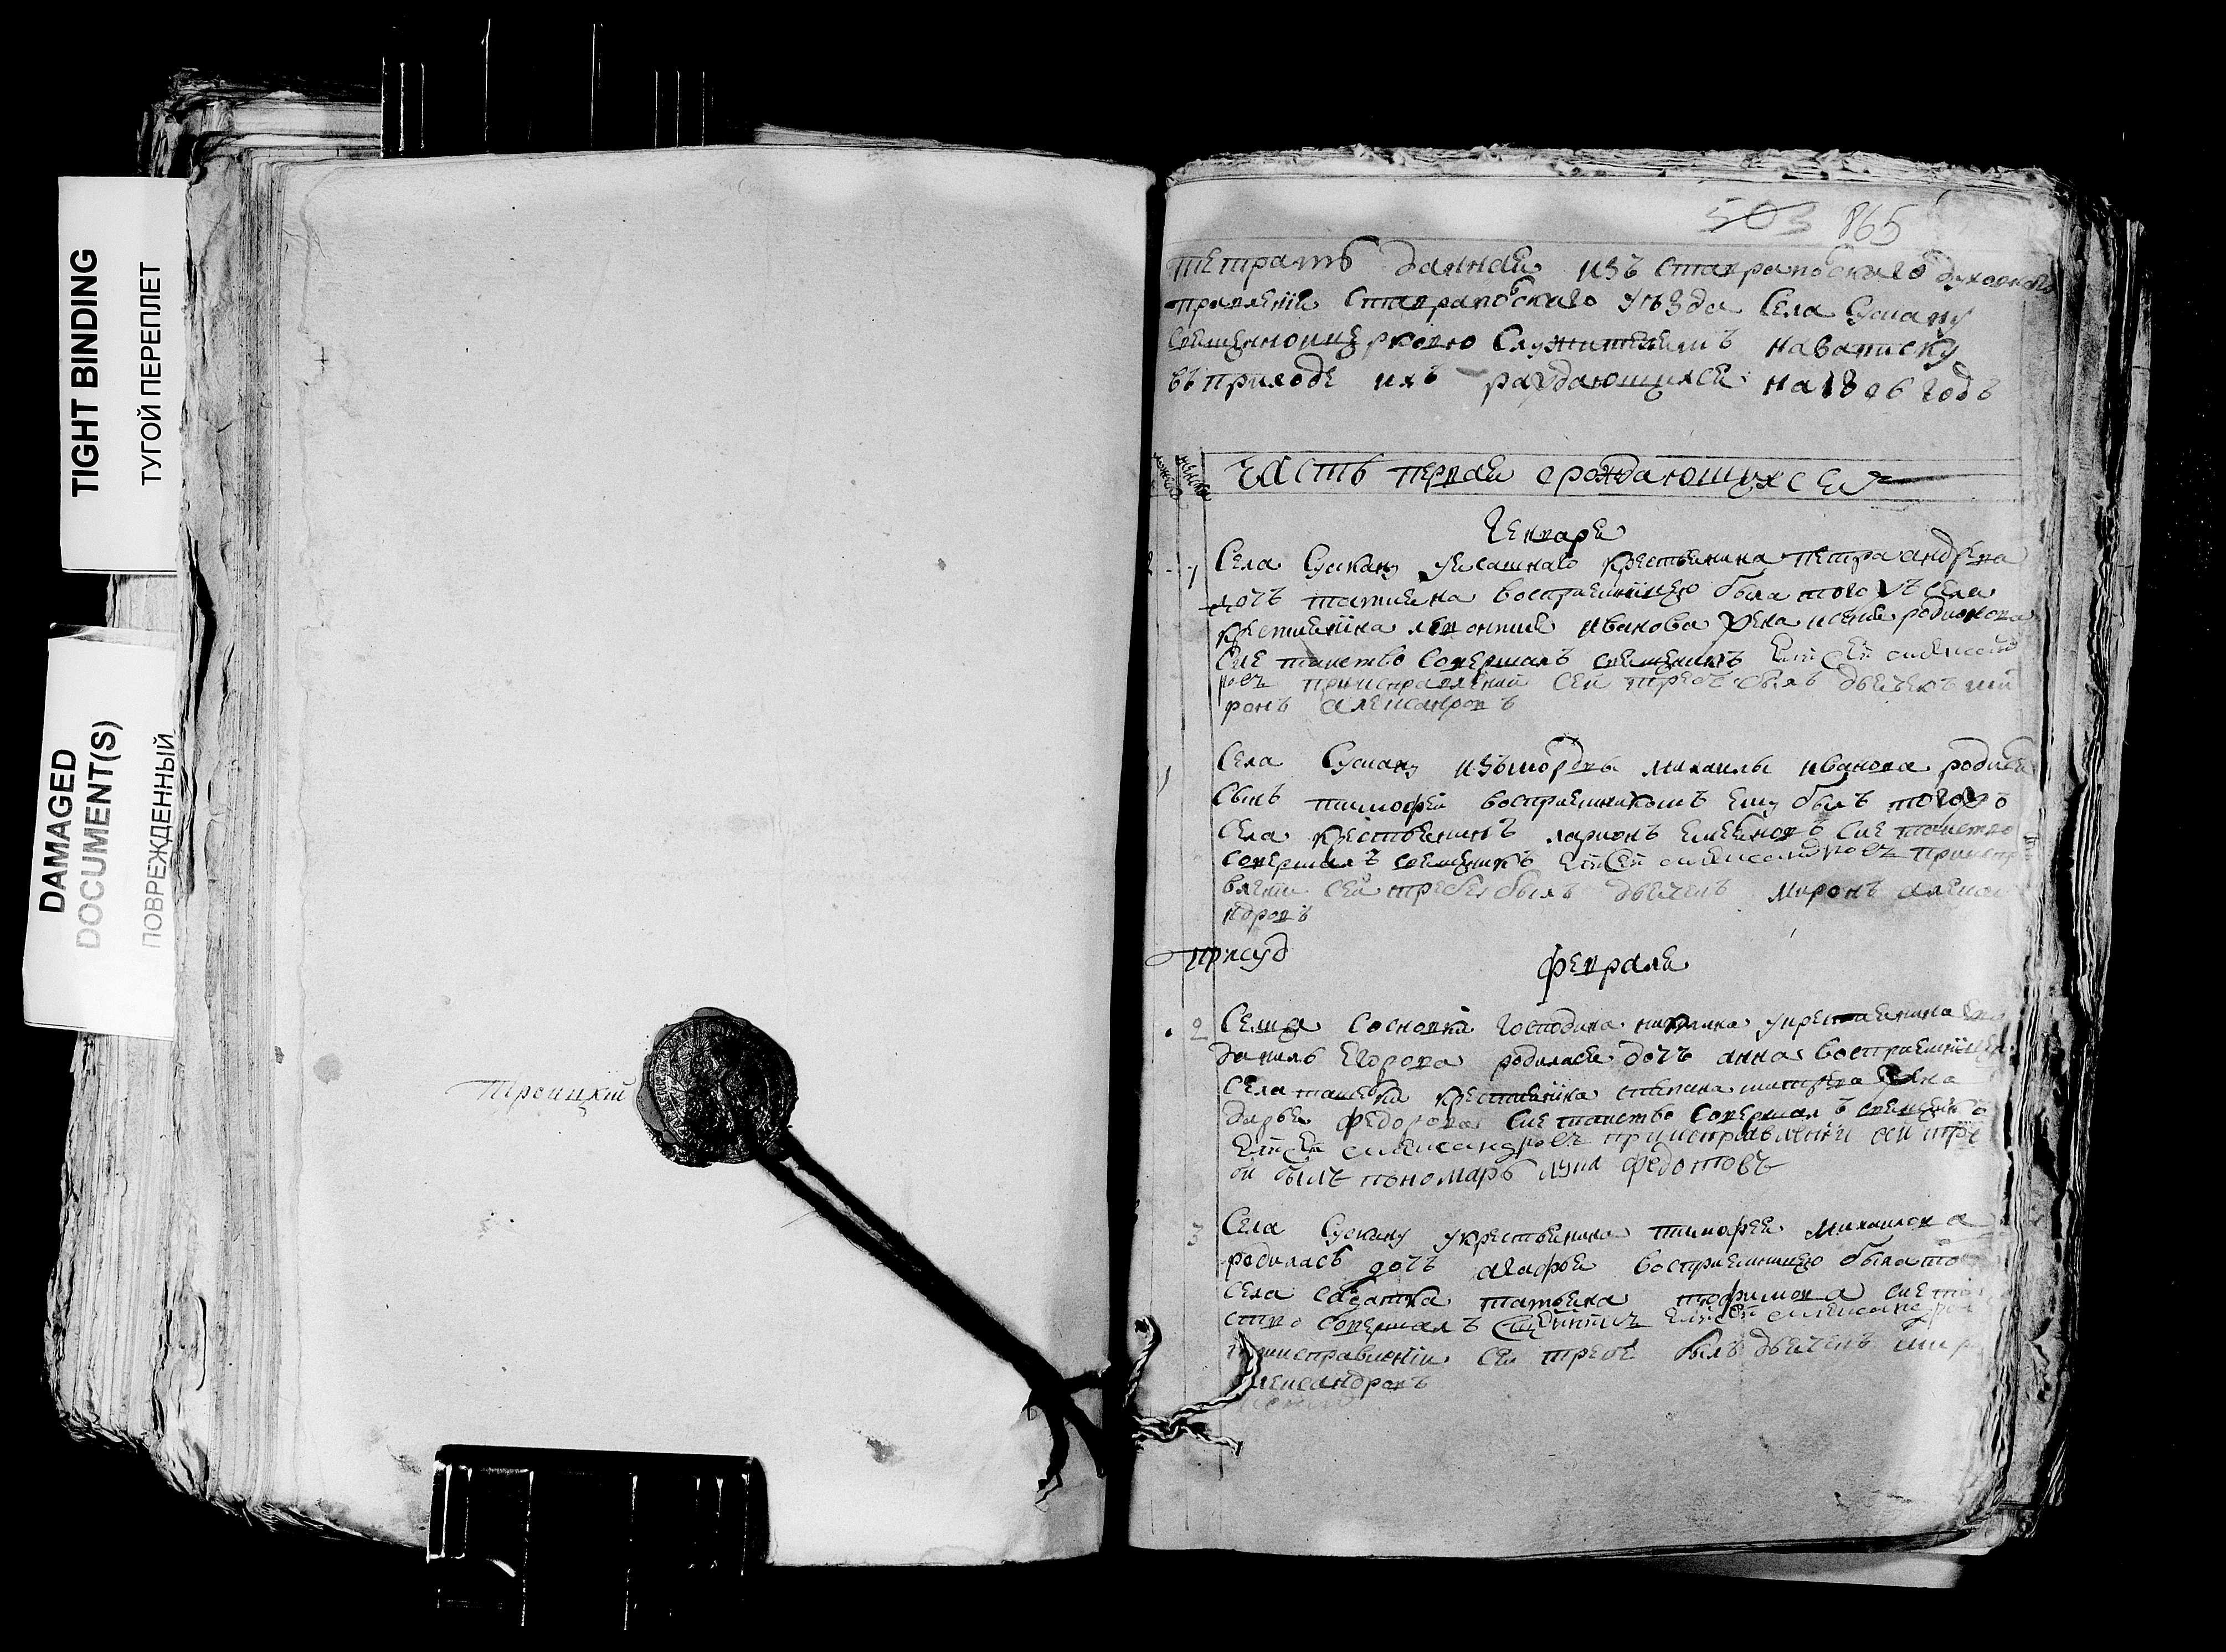 TIGHT BINDING
ТУГОЙ ПЕРЕПЛЕТ
DAMAGED
DOCUMENT(S)
ПОВРЕЖДЕННЫЙ
Троицкiй
503 865
тетрать данная изъ ставрапольскаго духовнаго
правленiя ставрапольскаго уѣзда села Сускану
священноцерковно служителямъ на записку
въ приходе ихъ раждающихся на 1806 годъ
часть первая о рождающихся
Генваря
1 Села Сускану крестьянина петра андрѣева
дочь татиана восприемницею была того жъ села
крестиянина леонтия иванова жена родионова
Сие таинство совершалъ священникъ Елисей александ
ровъ при исправленiй сей требы былъ дьячекъ ми
ронъ алексанровъ
1 Села Сускану измордвы михаилы иванова родился
сынъ тимофей восприемникомъ ему былъ тогожъ
села крестьянинъ ларионъ сие таинство
совершалъ священникъ Елисей александровъ при испра
влении сей требы былъ дьячекъ миронъ алекса
ндровъ
Февраля
2 Селца сосновки господина
данилы Егорова родилась дочь анна восприемницею
села крестиянина степана жена
дарья федорова сие таинство совершалъ священникъ
Елисей александровъ при исправленiи сей требе
ой былъ пономарь лука федотовъ
3 Села Сускану у крестьянина тимофея михаилова
родилась дочь агафья восприемницею была того
села солдатка татьяна трофимова сие таин
ство совершалъ священникъ Елисей александров
при исправленiи сей требе былъ дьячекъ миро
александровъ